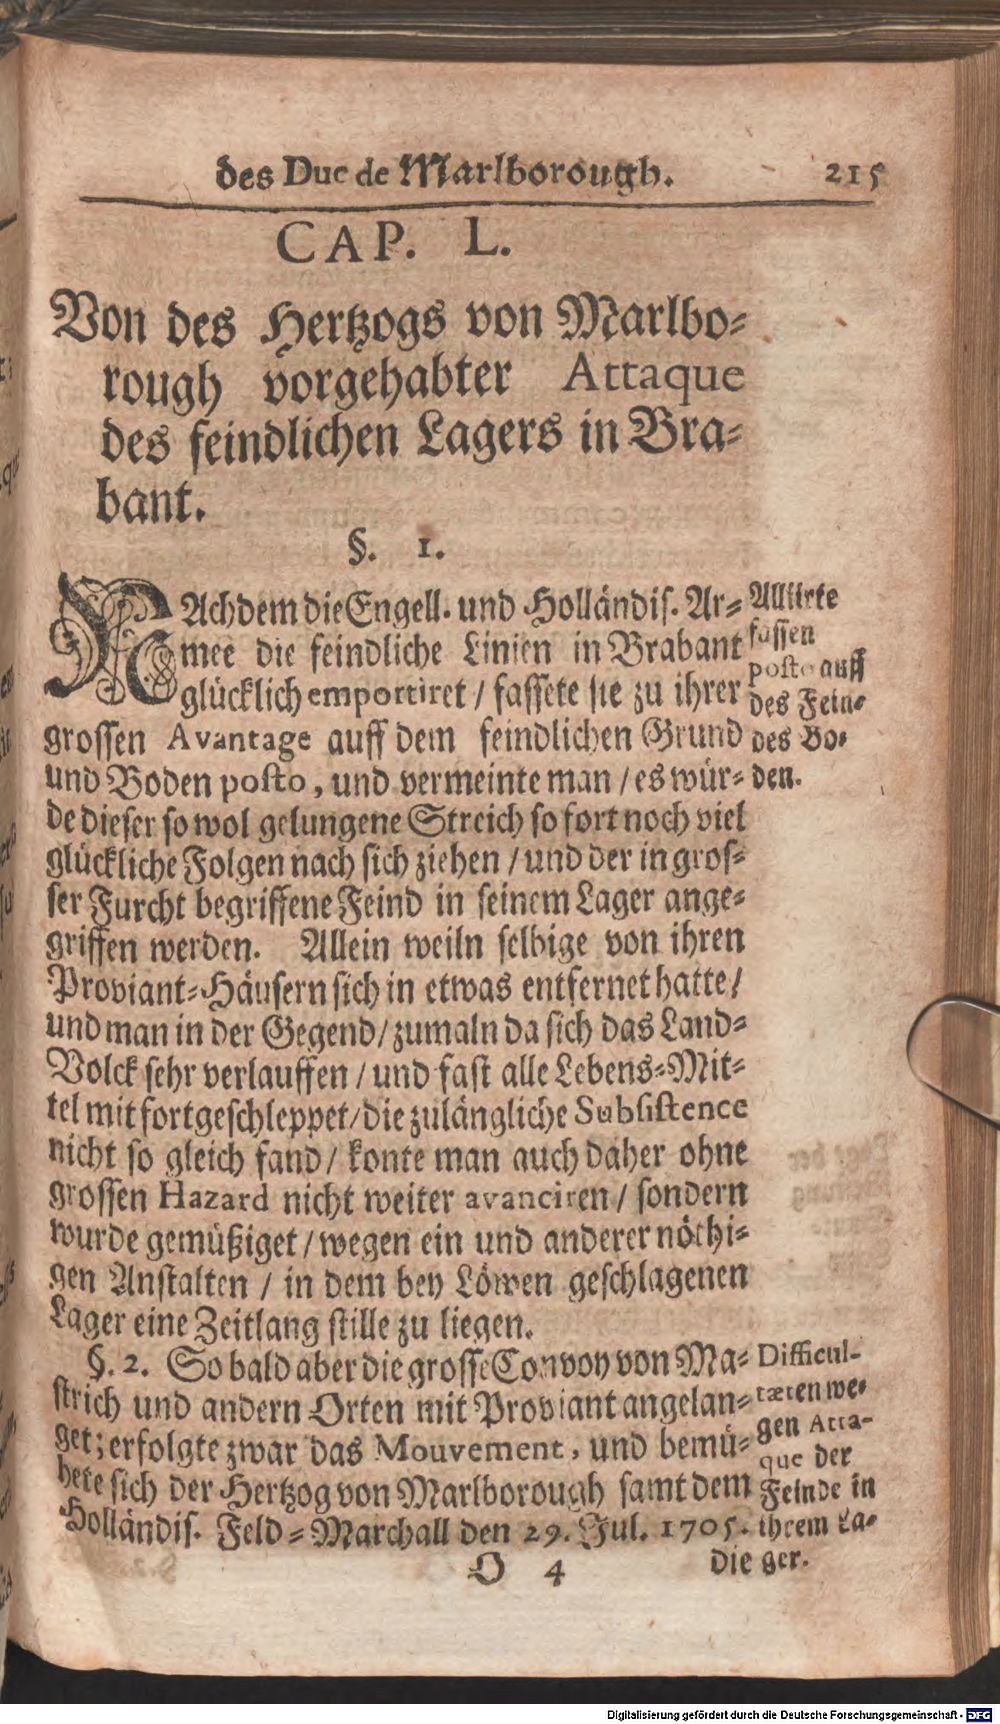 des Duc de Marlborough. 215
CAP. L.
Von des Hertzogs von Marlbo-
rough vorgehabter Attaque
des feindlichen Lagers in Bra-
bant.
§. 1.
NAchdem die Engell. und Holländis. Ar-
mee die feindliche Linien in Brabant
glücklich emportiret / fassete sie zu ihrer
grossen Avantage auff dem feindlichen Grund
und Boden posto, und vermeinte man / es wür-
de dieser so wol gelungene Streich so fort noch viel
glückliche Folgen nach sich ziehen / und der in gros-
ser Furcht begriffene Feind in seinem Lager ange-
griffen werden. Allein weiln selbige von ihren
Proviant-Häusern sich in etwas entfernet hatte /
und man in der Gegend / zumaln da sich das Land-
Volck sehr verlauffen / und fast alle Lebens-Mit-
tel mit fortgeschleppet / die zulängliche Subsistence
nicht so gleich fand / konte man auch daher ohne
grossen Hazard nicht weiter avanciren / sondern
wurde gemüßiget / wegen ein und anderer nöthi-
gen Anstalten / in dem bey Löwen geschlagenen
Lager eine Zeitlang stille zu liegen.
Alliirte
fassen
posto auff
des Fein-
des Bo-
den.
§. 2. So bald aber die grosse Convoy von Ma-
strich und andern Orten mit Proviant angelan-
get; erfolgte zwar das Mouvement, und bemü-
hete sich der Hertzog von Marlborough samt dem
Holländis. Feld-Marchall den 29. Jul. 1705.
Difficul-
tæten we-
gen Atta-
que der
Feinde in
ihrem La-
ger.
O 4 die
Digitalisierung gefördert durch die Deutsche Forschungsgemeinschaft - DFG